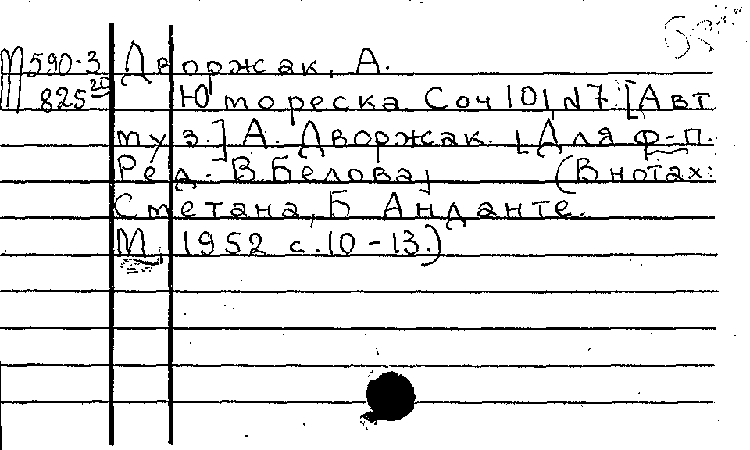 П590-3 Дворжак, А.
825 20 Юмореска Соч 101 N7. [Авт
муз.] А. Дворжак. [Для ф-п.
Ред. В. Белова] (В нотах:
Сметана, Б. Анданте.
М, 1952 с. 10-13.)